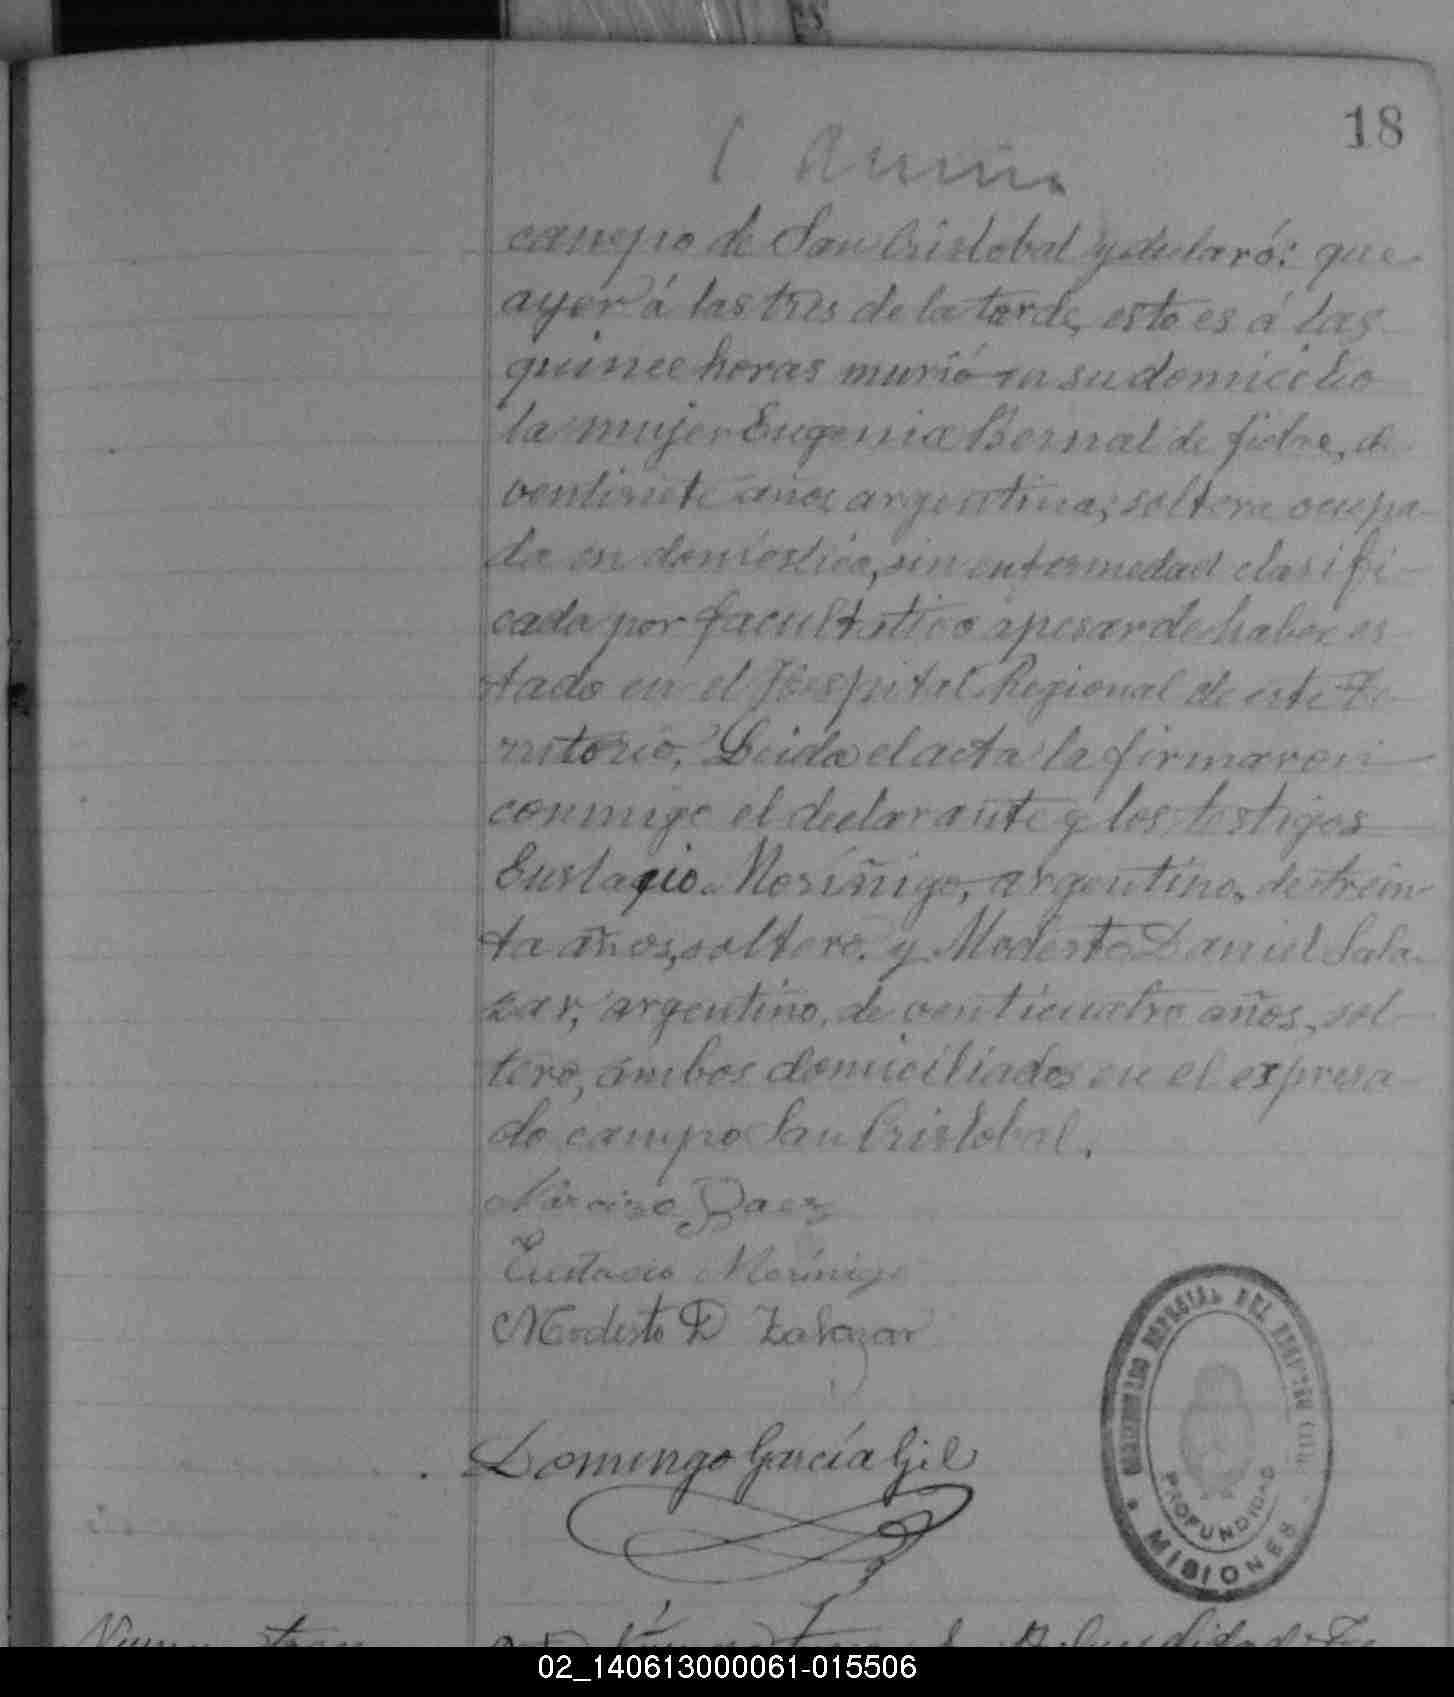 18
campo de San Cristobal y declaró: que
ayer á las tres de la tarde, esto es á las
quince horas murió en su domicilio
la mujer Eugenia Bernal de fiebre, de
ventisiete años, argentina, soltera ocupa-
da en doméstica, sin enfermedad clasifi-
cada por facultativo apesar de haber es-
tado en el Hospital Regional de este Te-
rritorio. Leida el acta la firmaron
conmigo el declarante y los testigos
Eustacio Moríñigo, argentino, de trein-
ta años, soltero. y Modesto Daniel Sala-
zar, argentino, de venticuatro años, sol-
tero, ámbos domiciliados en el expresa-
do campo San Cristobal.
Narcizo Paez
Eustacio Moriñigo
Modesto D Zalazar
Domingo García Gil
DEL
PROFUNDIDAD
MISIONES
02_140613000061-015506